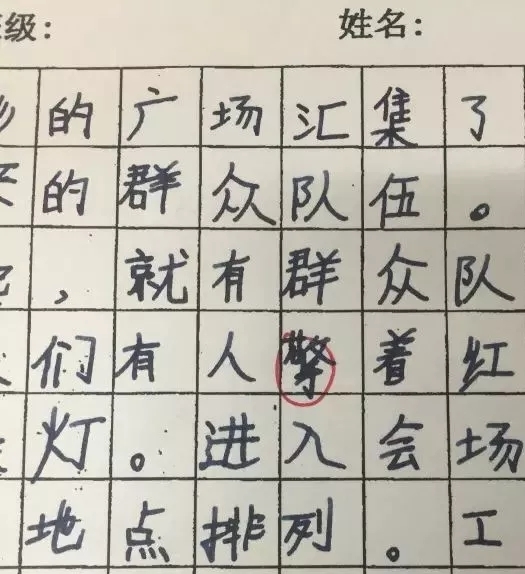 级： 姓名：
的广场汇集了
的群众队伍。
，就有群众队
们有人擎着红
灯。进入会场
地点排列。工